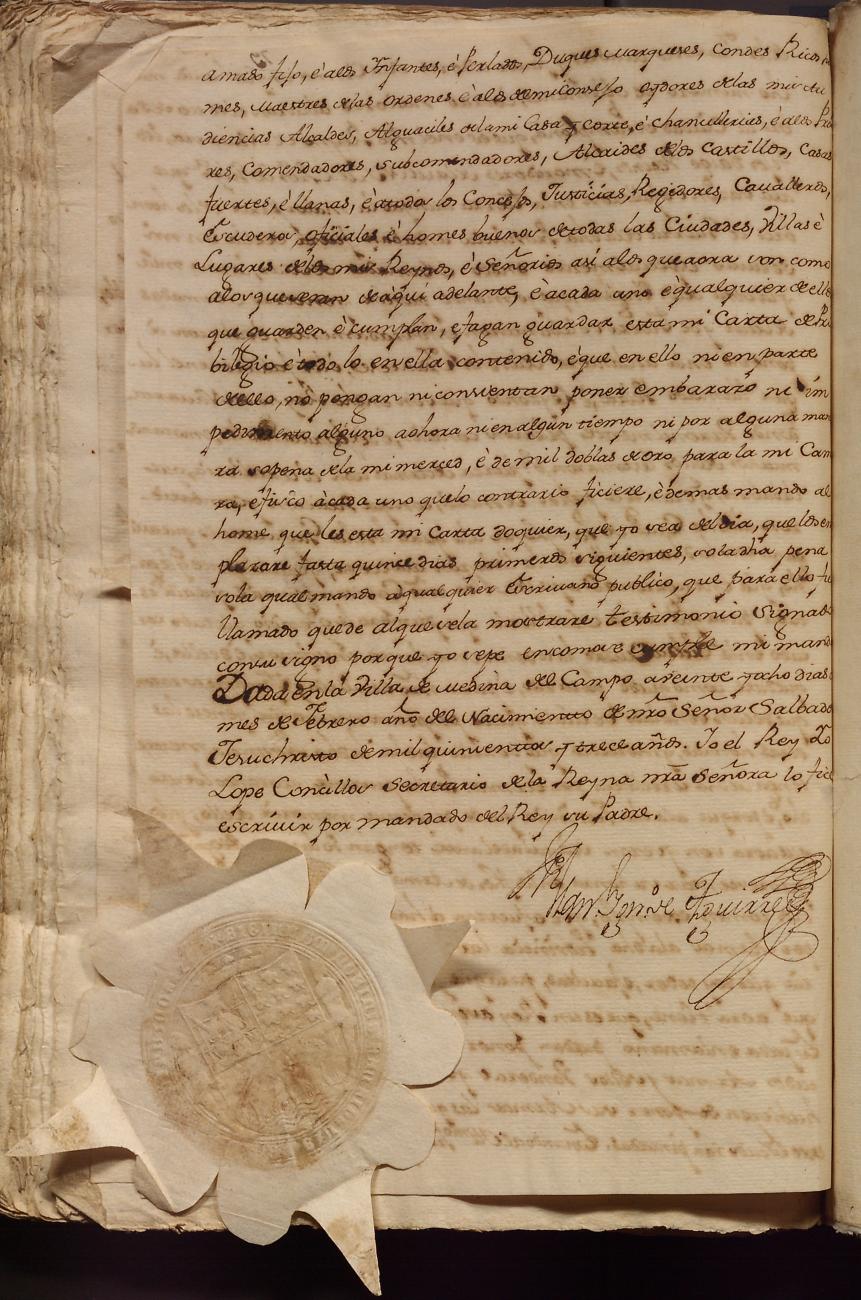 amado fijo, è alos Infantes, é Perlados, Duques Marqueses, Condes Ricos
mes, Maestres delas ordenes è alos demi Consejo oydores delas mis Au
diencias Alcaldes, Alguaciles dela mi Casa y Corte, é Chancillerias, è alos Prio
res, Comendadores, subcomendadores, Alcaides delos Castillos, Casas
fuertes, è llanas, è atodos los Concejos, Justicias, Regidores, Cavalleros,
Escuderos, oficiales è homes buenos de todas las Ciudades, Villas è
Lugares delos mis Reynos, è Señorios así alos que aora son como
alos que seran de aquí adelante, è acada uno è qualquier de ellos
que guarden è cumplan, e fagan guardar esta mi Carta de Pri
bilegio è todo lo en ella contenido, é que en ello ni en parte
dello, no pongan ni consientan poner embarazo ni im
pedimento alguno aohora ni en algun tiempo ni por alguna mane
ra sopena dela mi merced, è de mil doblas de oro, para la mi Cam
ra, é fisco à cada uno quelo contrario ficiere, è demas mando al
home que les esta mi Carta doquier, que yo sea del dia, que los em
plazare fasta quince dias primeros siguientes, sola dha pena
sola qual mando à qualquier Escrivano publico, que para ello fu
llamado que de al que sela mostrare testimonio signado
con su signo porque yo sepa en como se cumple mi mand
Dada en la Villa de Medina del Campo a veinte y ocho dias
mes de Febrero año del Nacimiento de nro Señor Salbado
Jesuchristo de mil quinientos y trece años. Yo el Rey Yo
Lope Concillos Secretario dela Reyna nra Señora lo fice
escrivir por mandado del Rey su Padre.